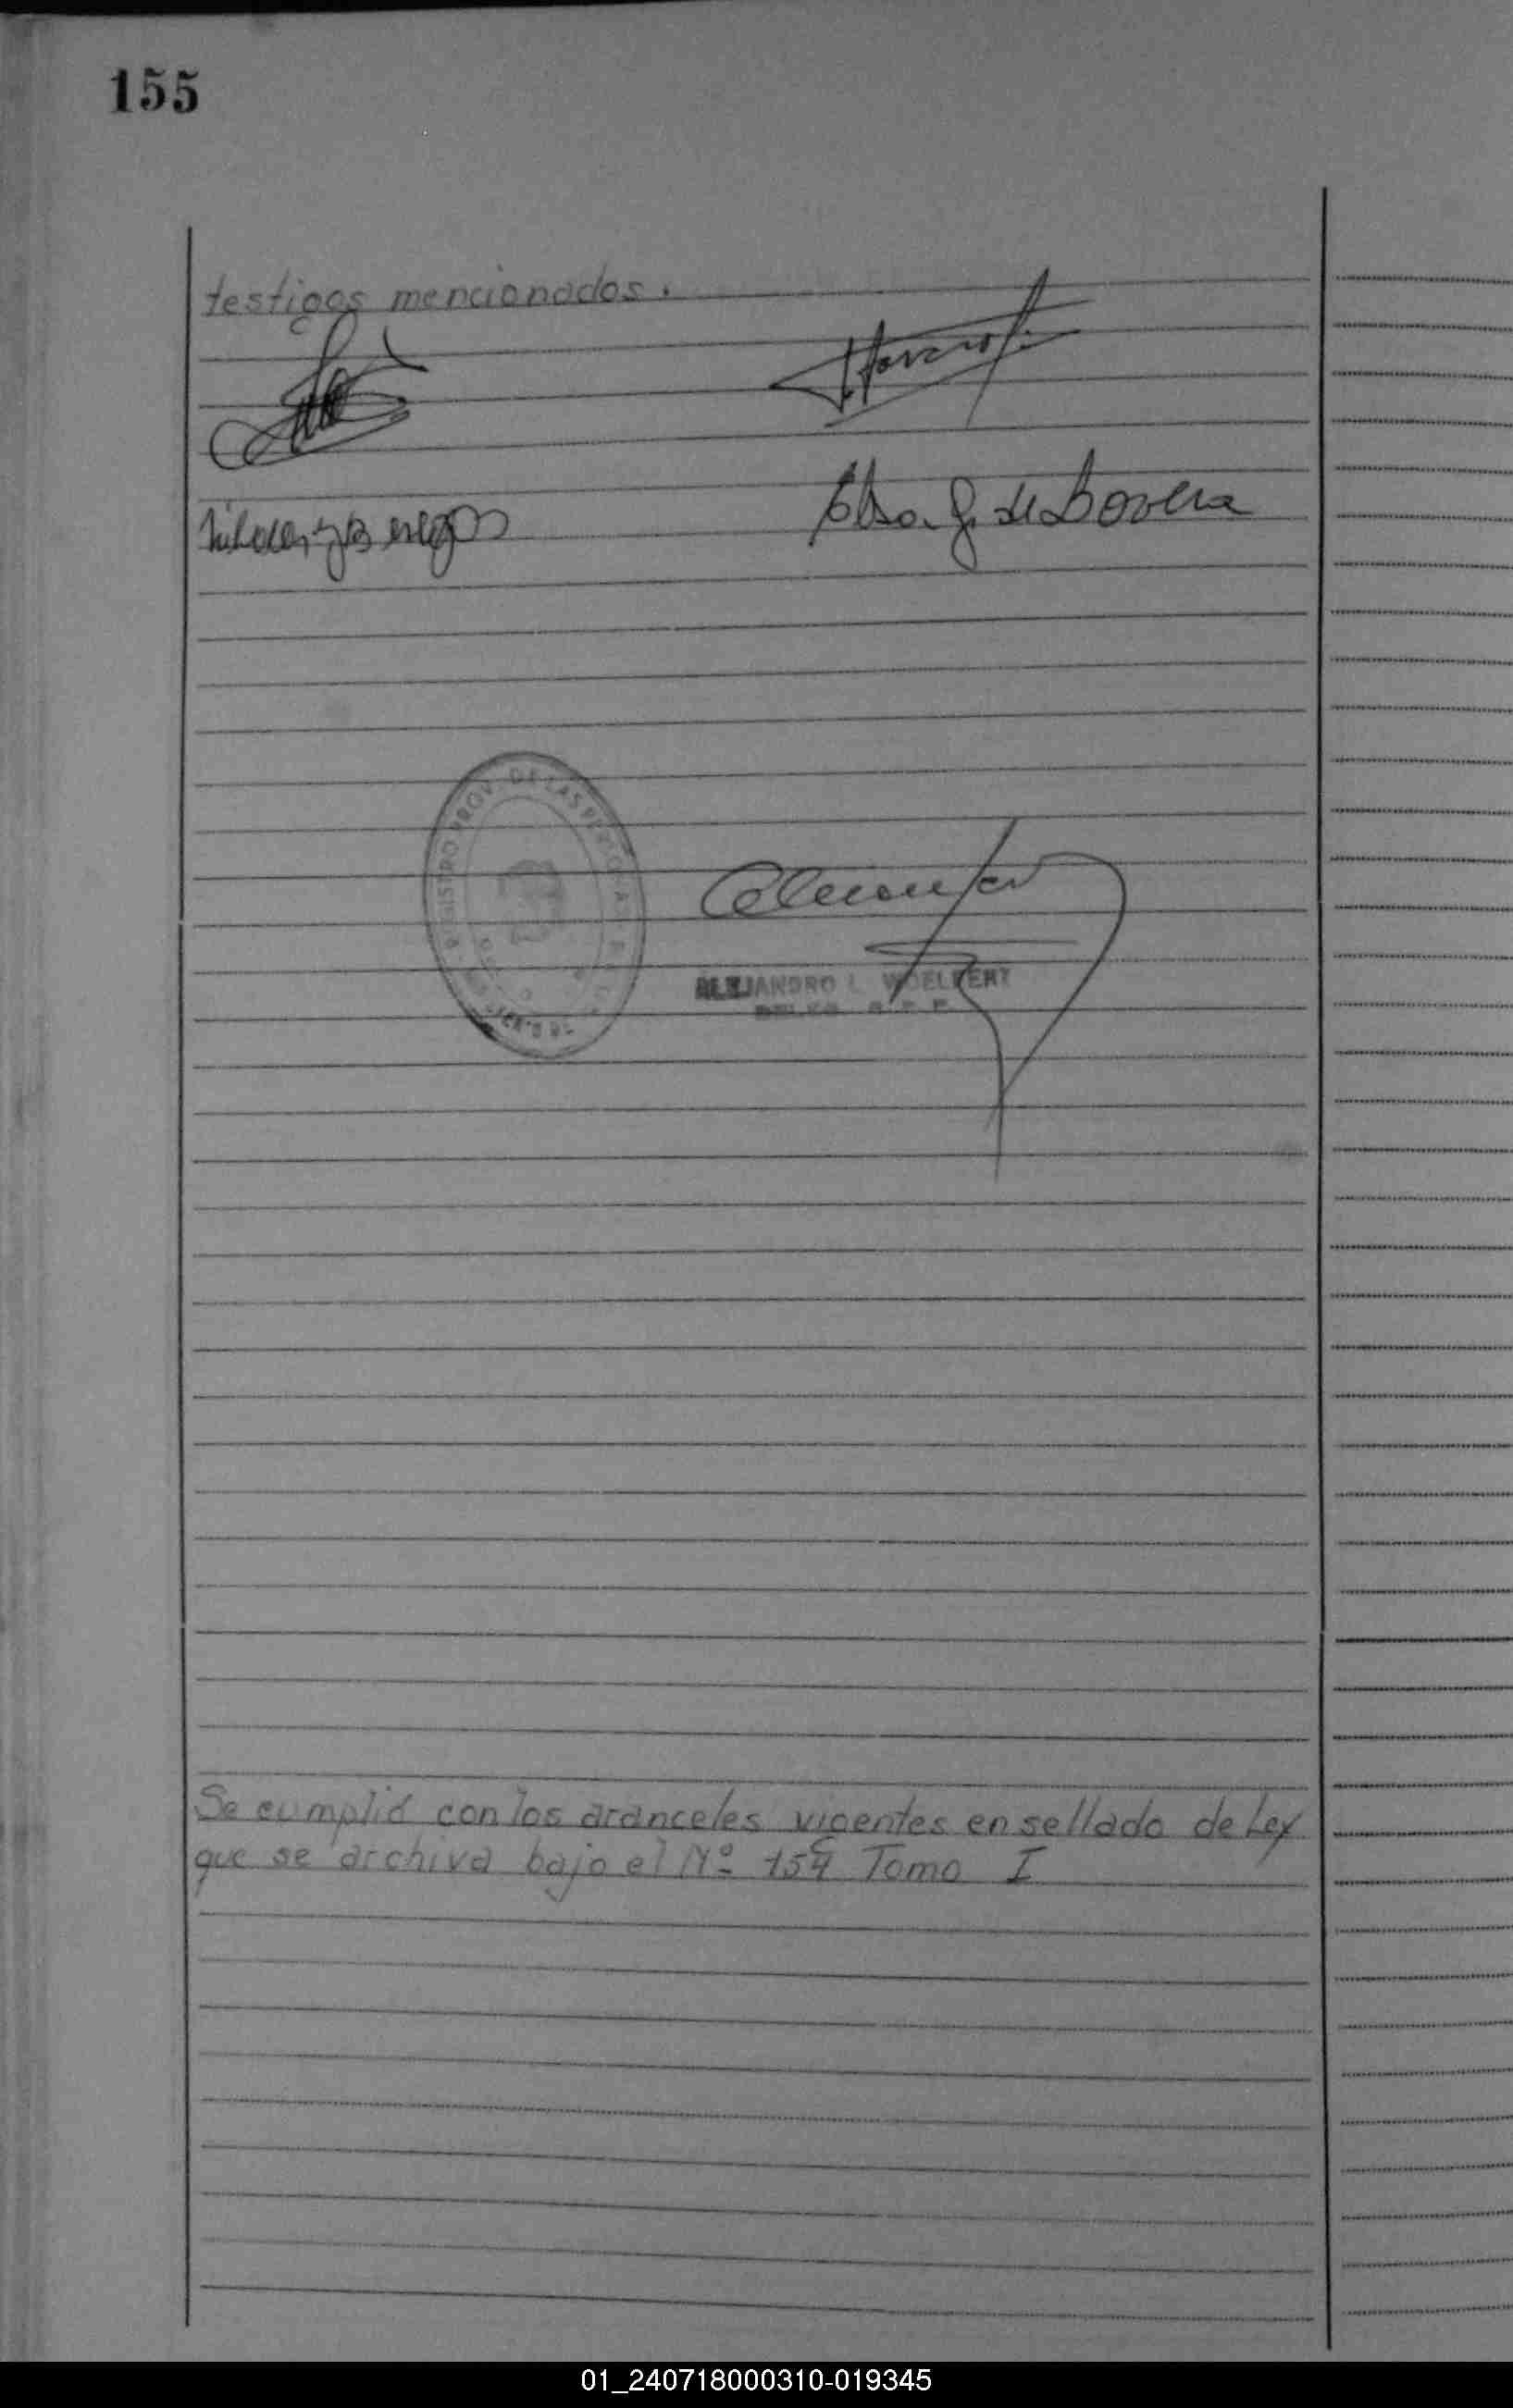 155
testigos mencionados.
Elsa G. de Bovera
REGISTRO PROV. DE LAS PERSONAS
ALEJANDRO L WOELFERT
Se cumplió con los aranceles vigentes en sellado de Ley
que se archiva bajo el Nº 154 Tomo I
01_240718000310-019345